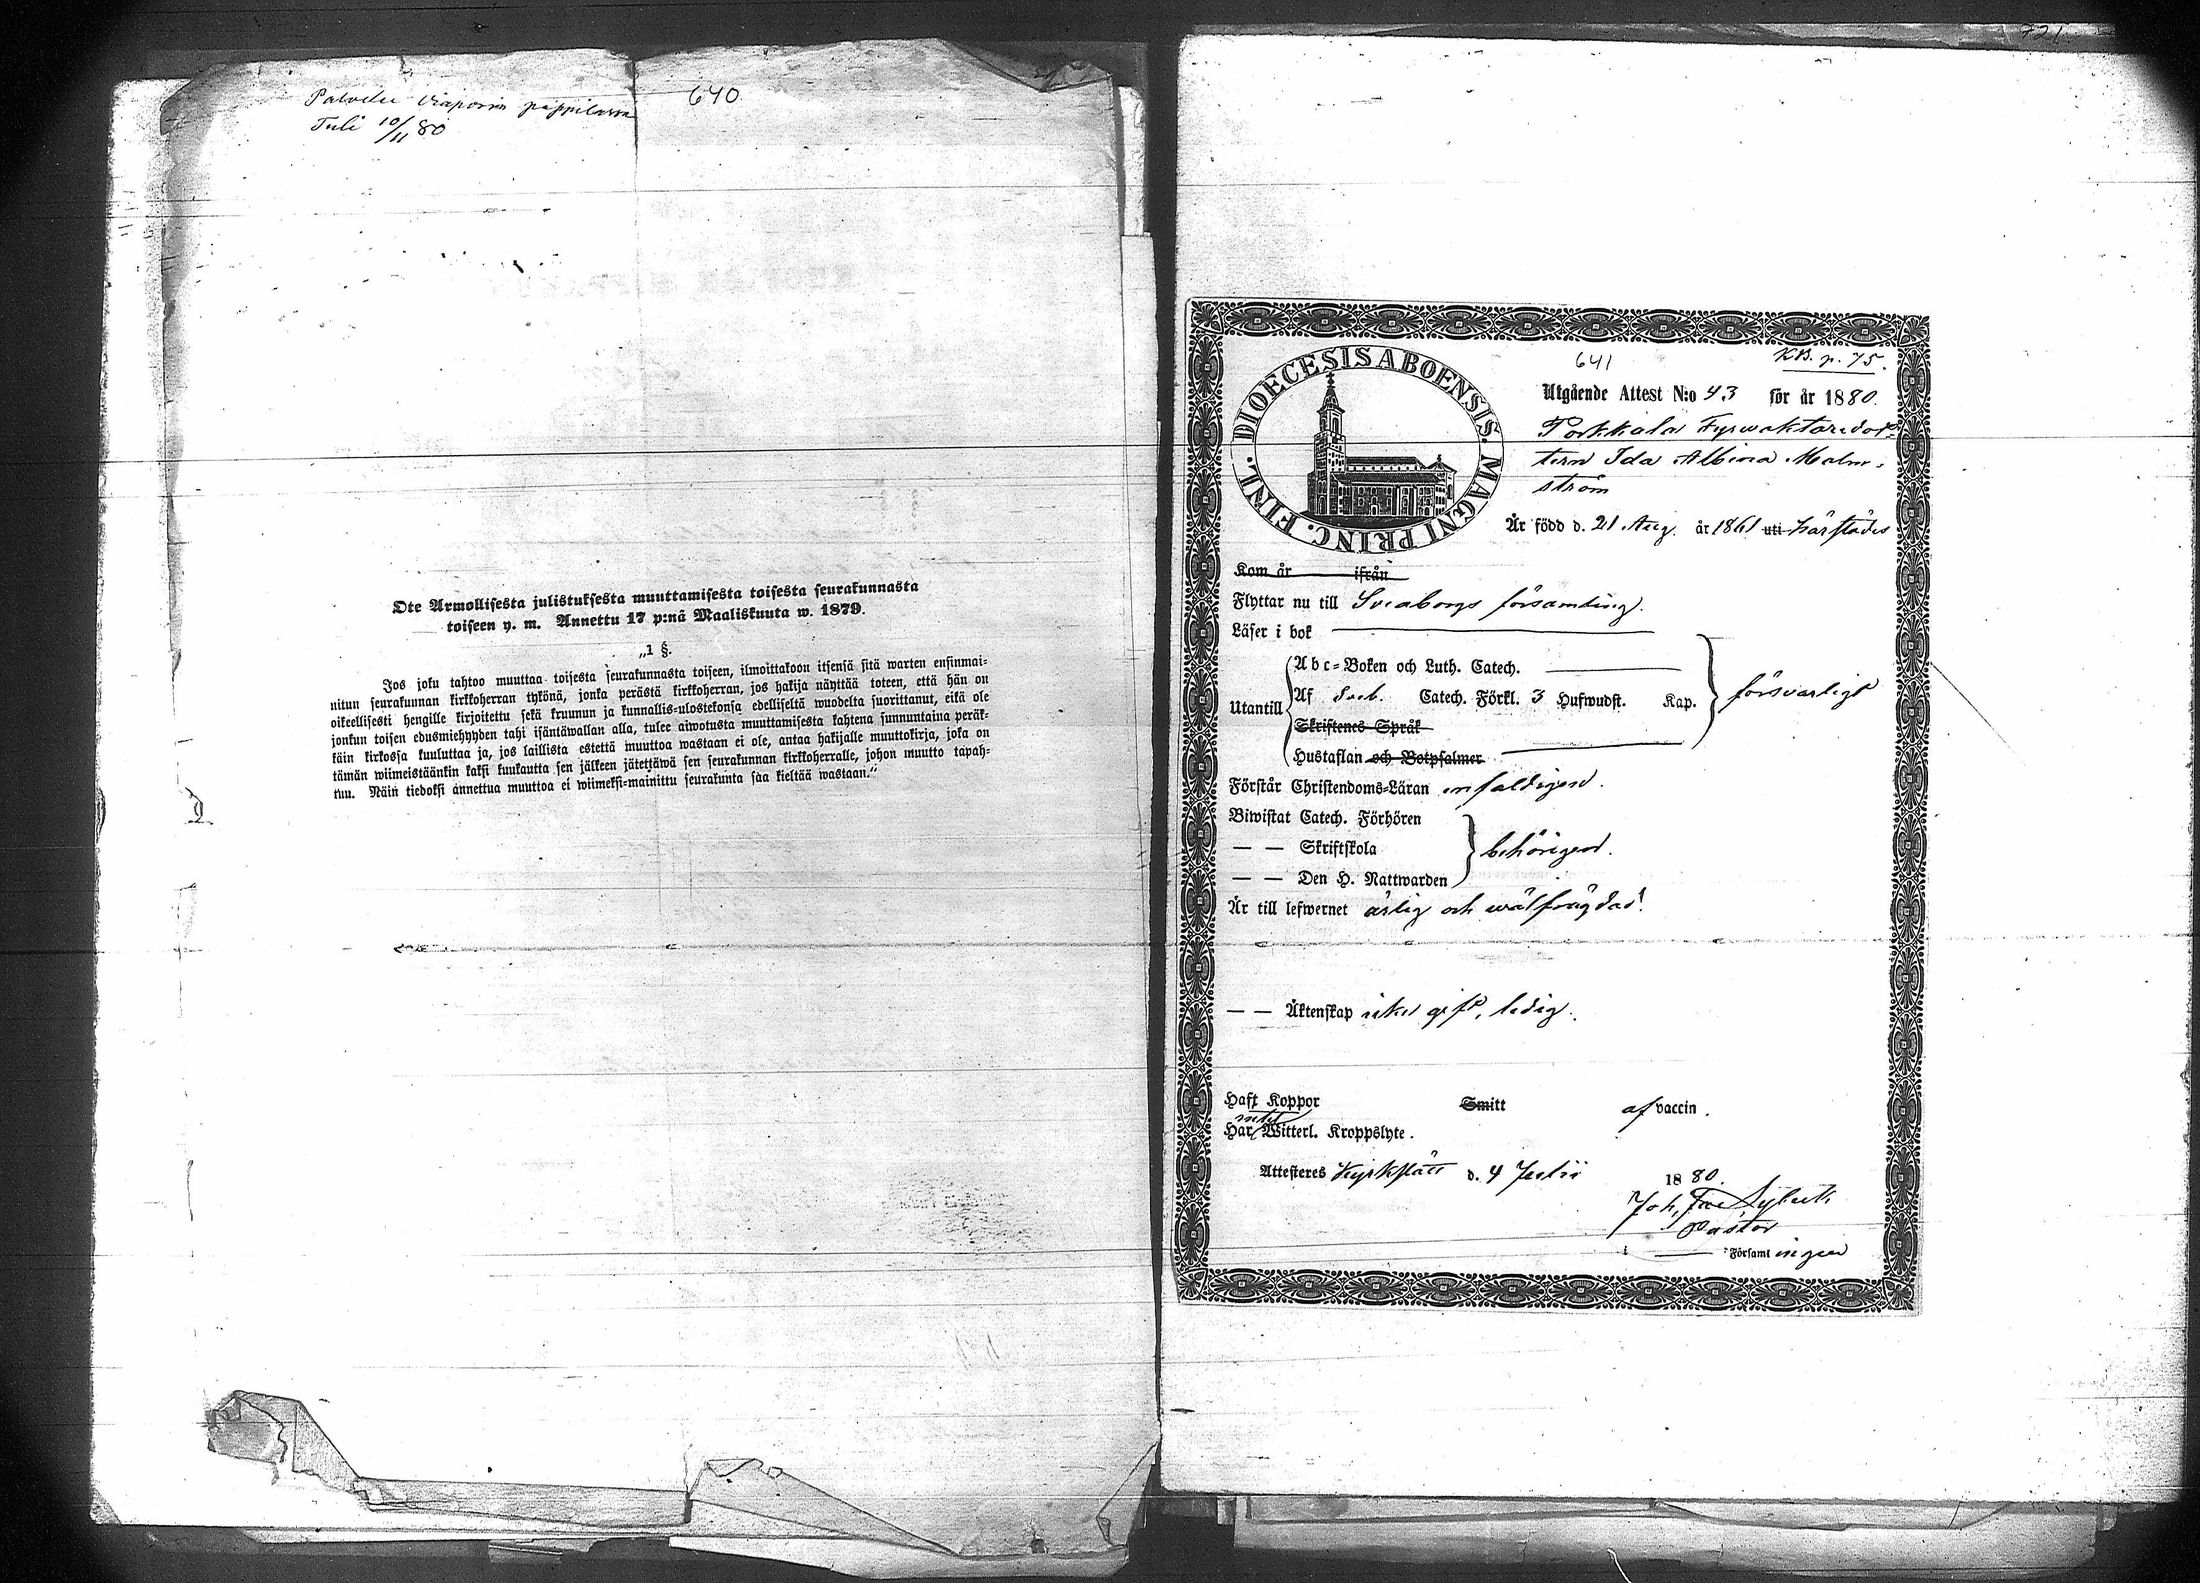 640
Palvelee Viaporin pappilassa
Tuli 10/11 80
Ote Armollisesta julistuksesta muuttamisesta toisesta seurakunnasta
toiseen y. m. Annettu 17 p:nä Maaliskuuta w. 1879.
„1 §.
Jos joku tahtoo muuttaa toisesta seurakunnasta toiseen, ilmoittakoon itsensä sitä warten ensinmai=
nitun seurakunnan kirkkoherran tykönä, jonka perästä kirkkoherran, jos hakija näyttää toteen, että hän on
oikeellisesti hengille kirjoitettu sekä kruunun ja kunnallis-ulostekonsa edelliseltä wuodelta suorittanut, eikä ole
jonkun toisen edusmiehyyden tahi isäntäwallan alla, tulee aiwotusta muuttamisesta kahtena sunnuntaina peräk=
käin kirkossa kuuluttaa ja, jos laillista estettä muuttoa wastaan ei ole, antaa hakijalle muuttokirja, joka on
tämän wiimeistäänkin kaksi kuukautta sen jälkeen jätettäwä sen seurakunnan kirkkoherralle, johon muutto tapah=
tuu. Näin tiedoksi annettua muuttoa ei wiimeksi-mainittu seurakunta saa kieltää wastaan.“
641
KB. p. 75.
DIOECESIS ABOENSIS. MAGNI PRINC. FINL.
Utgående Attest N:o 43 för år 1880.
Porkkala Fyrvaktaredot=
tern Ida Albina Malm=
ström
Är född d. 21 Aug. år 1861 uti härstädes
Kom år ifrån
Flyttar nu till Sveaborgs församling.
Läser i bok
Utantill
Abc=Boken och Luth. Catech.
Af Sveb. Catech. Förkl. 3 Hufwudst. Kap. försvarligt
Skriftenes Språk
Hustaflan och Botpsalmer
Förstår Christendoms=Läran enfaldigen.
Biwistat Catech. Förhören
— — Skriftskola behörigen.
— — Den H. Nattwarden
Är till lefwernet ärlig och wälfrägdad.
— — Äktenskap icke gift, ledig.
Haft Koppor Smitt af vaccin.
intet
Har Witterl. Kroppslyte.
Attesteres Kyrkslätt d. 4 Julii 1880.
Joh. Fr.
Pastor
i Församlingen